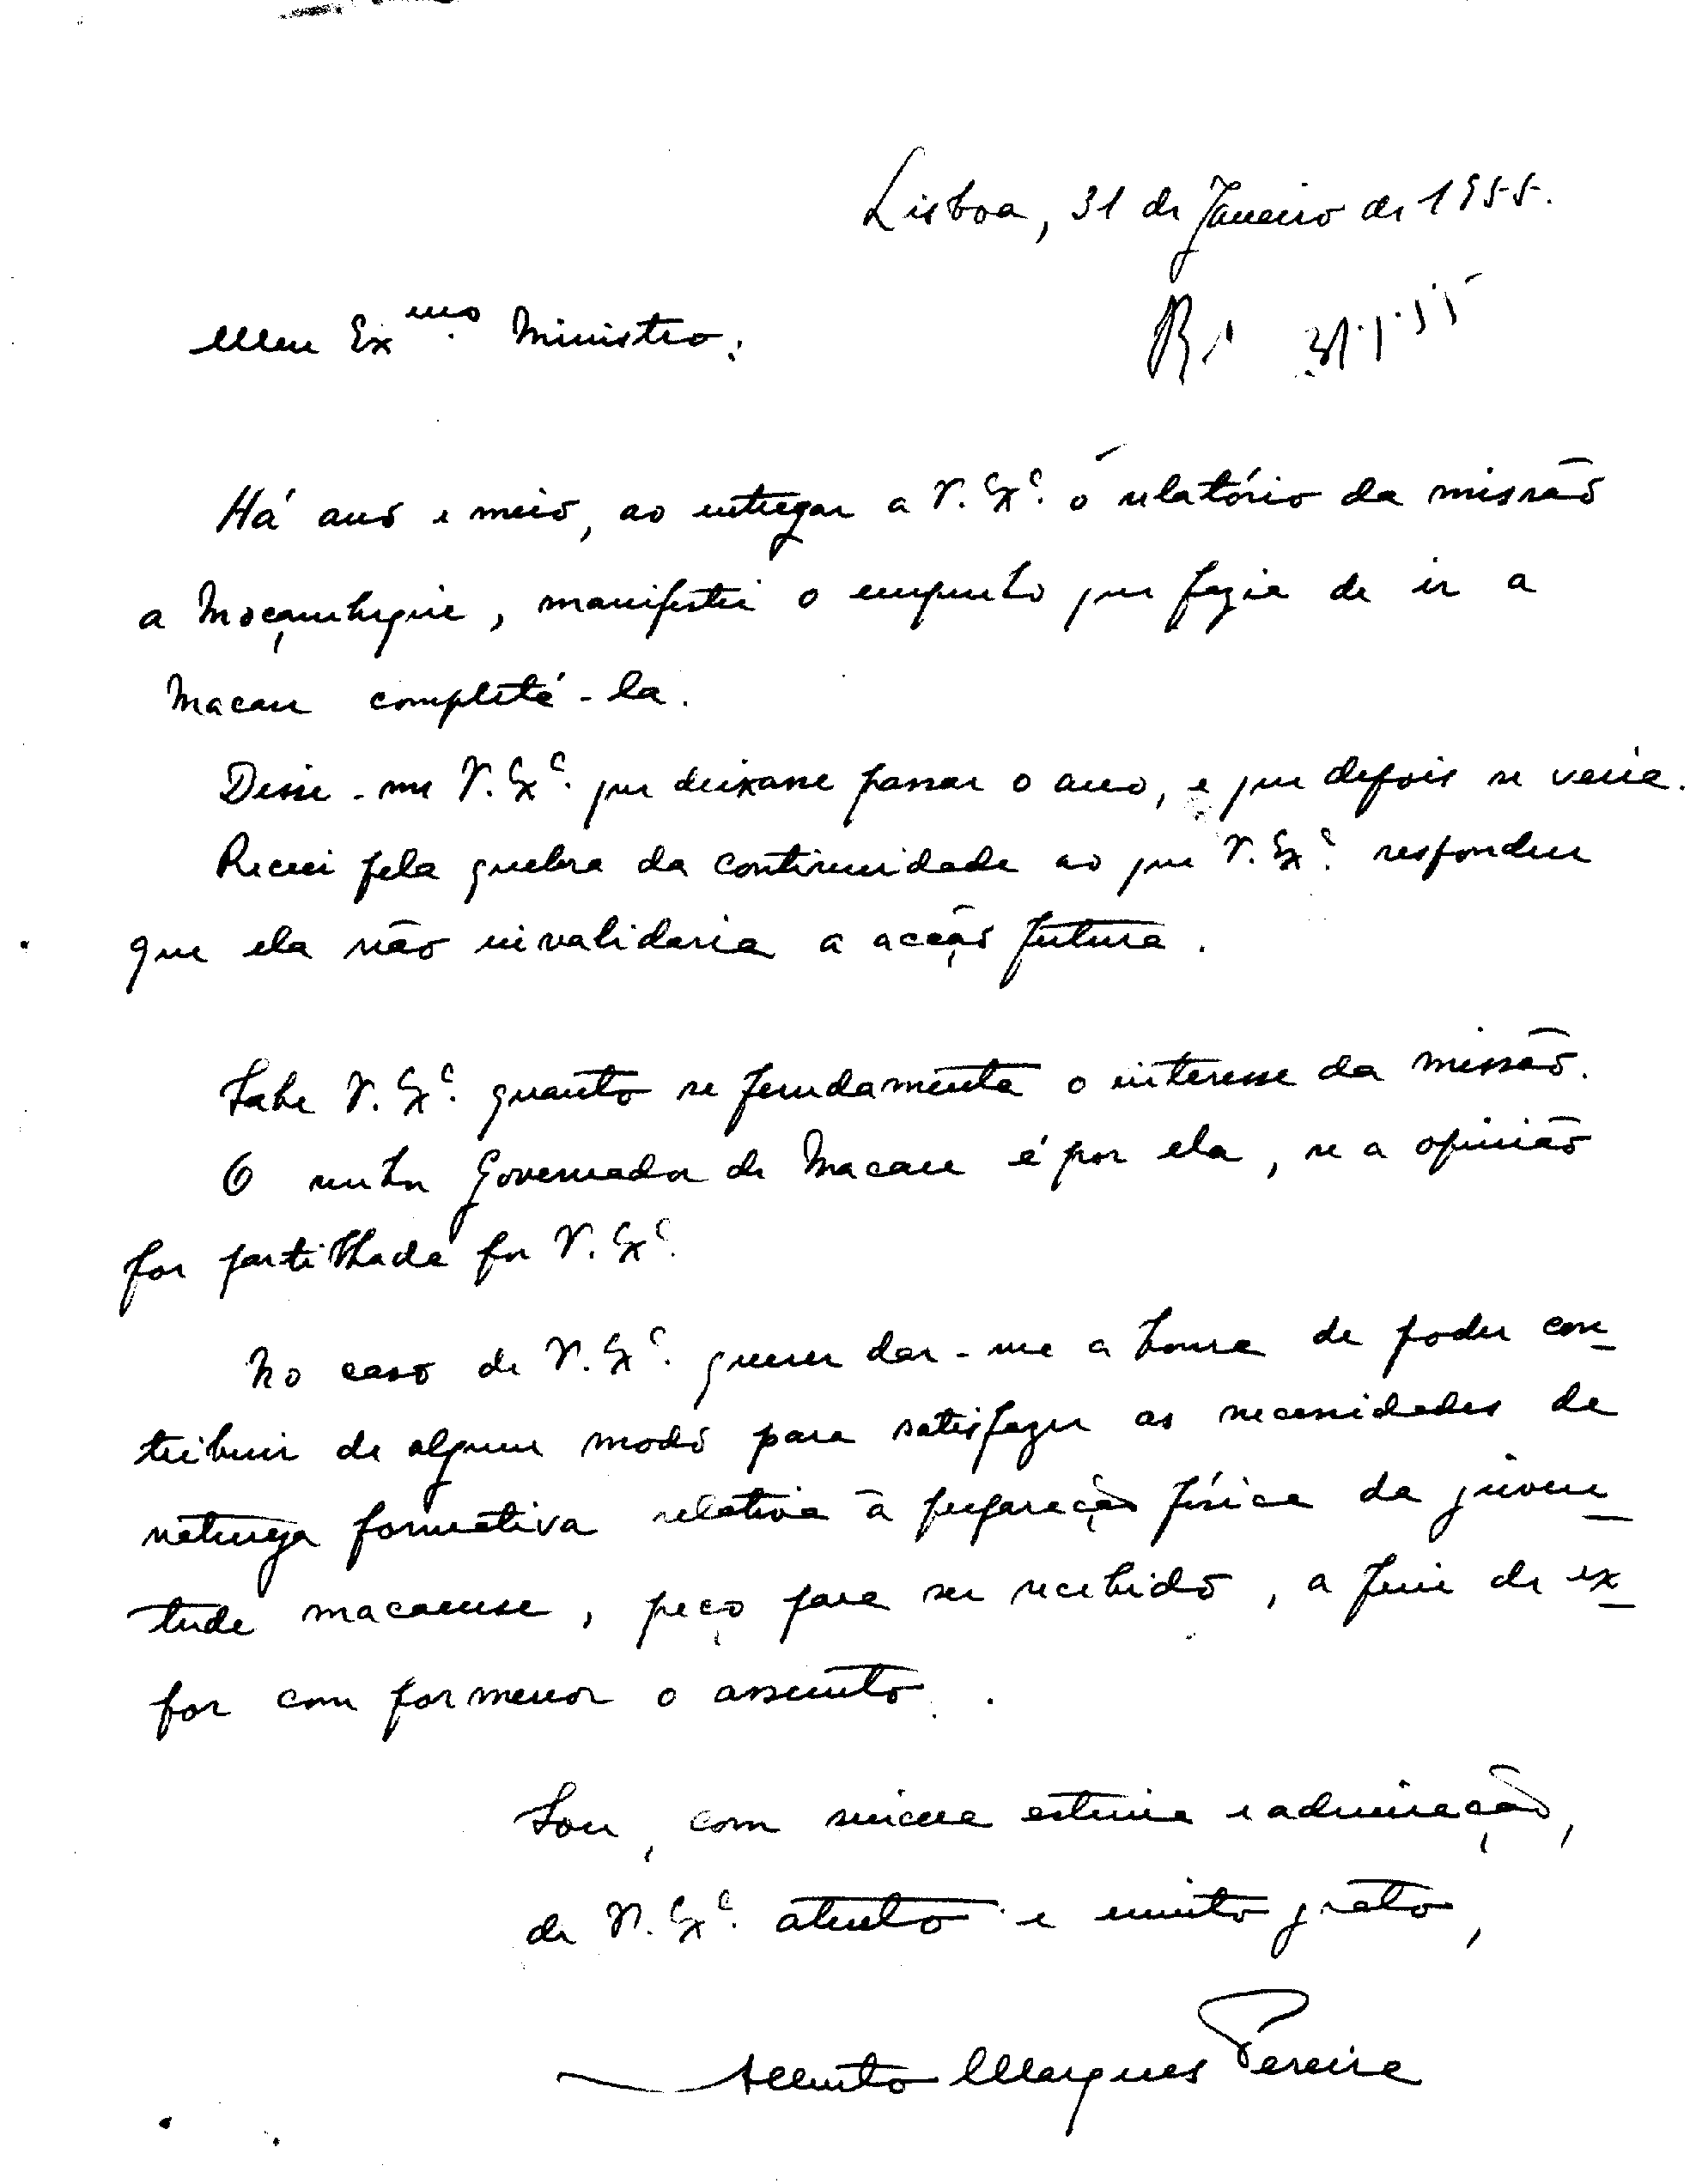 Lisboa, 31 de Janeiro de 1955.
Meu Exmo. Ministro:
31.1.55
Há ano e meio, ao entregar a V. Exª. o relatório da missão
a Moçambique, manifestei o empenho que fazia de ir a
Macau completá-la.
Disse-me V. Exª. que deixasse passar o ano, e que depois se veria.
Receei pela quebra da continuidade ao que V. Exª. respondeu
que ela não invalidaria a acção futura.
Sabe V. Exª. quanto se fundamenta o interesse da missão.
O senhor Governador de Macau é por ela, se a opinião
for partilhada por V. Exª.
No caso de V. Exª. querer dar-me a honra de poder con-
tribuir de algum modo para satisfazer as necessidades de
natureza formativa relativa à preparação física da juven-
tude macaense, peço para ser recebido, a fim de ex-
por com pormenor o assunto.
Sou, com sincera estima e admiração,
de V. Exª. atento e muito grato,
Marques Pereira